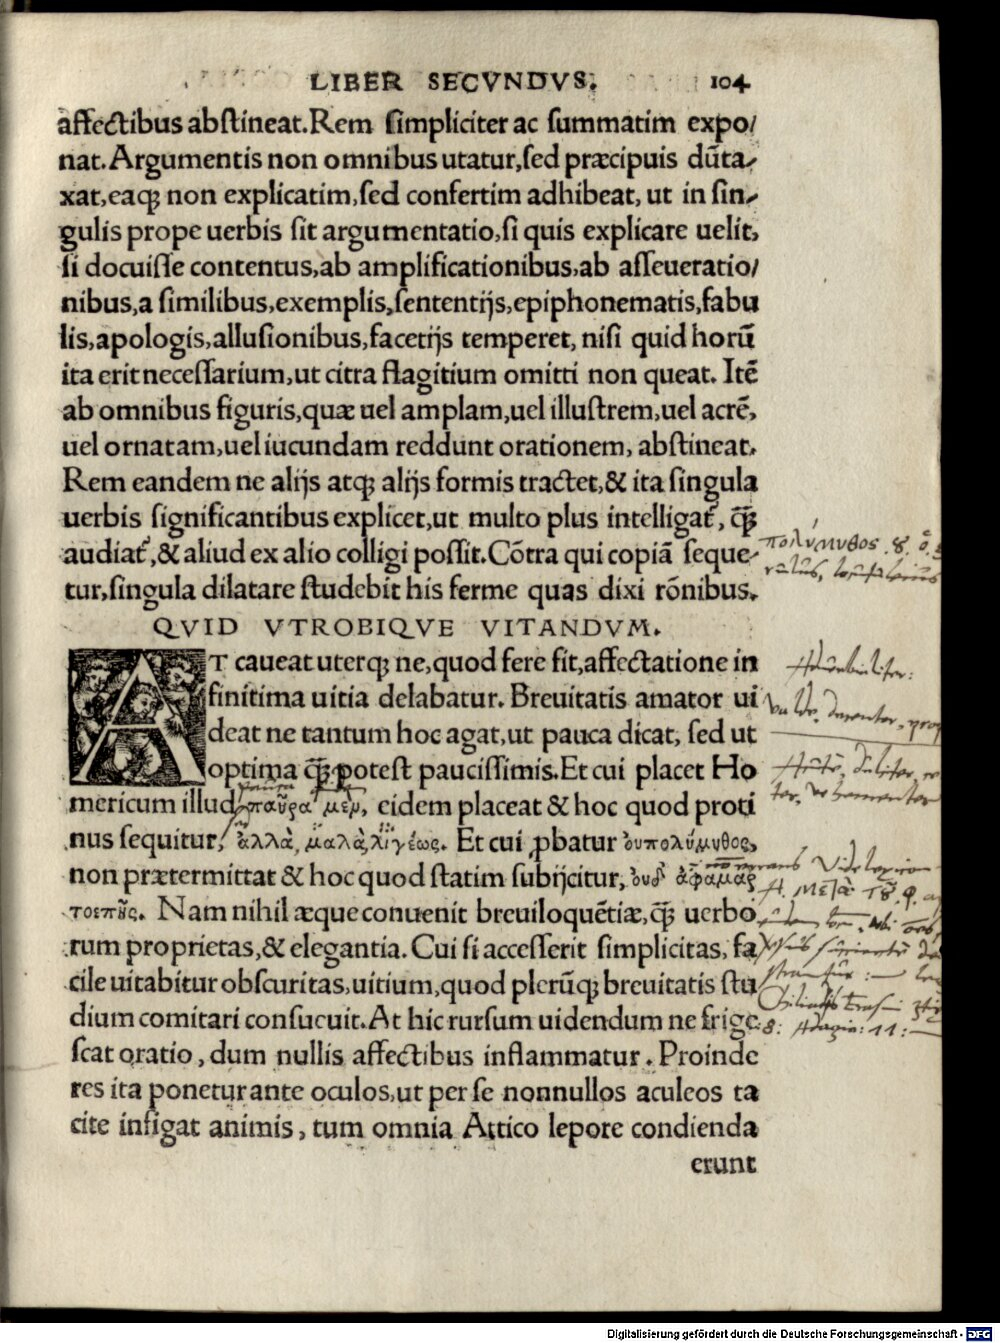 LIBER SECVNDVS. 104
affectibus abstineat. Rem simpliciter ac summatim expo/
nat. Argumentis non omnibus utatur, sed præcipuis dūta/
xat, eaqꝫ non explicatim, sed confertim adhibeat, ut in sin/
gulis prope uerbis sit argumentatio, si quis explicare uelit,
si docuisse contentus, ab amplificationibus, ab asseueratio/
nibus, a similibus, exemplis, sententijs, epiphonematis, fabu
lis, apologis, allusionibus, facetijs temperet, nisi quid horū
ita erit necessarium, ut citra flagitium omitti non queat. Itē
ab omnibus figuris, quæ uel amplam, uel illustrem, uel acrē,
uel ornatam, uel iucundam reddunt orationem, abstineat.
Rem eandem ne alijs atqꝫ alijs formis tractet, & ita singula
uerbis significantibus explicet, ut multo plus intelligat᷑, q̄ꝫ
audiat᷑, & aliud ex alio colligi possit. Cōtra qui copiā seque/
tur, singula dilatare studebit his ferme quas dixi rōnibus.
πολύμυθος
QVID VTROBIQVE VITANDVM.
AT caueat uterqꝫ ne, quod fere fit, affectatione in
finitima uitia delabatur. Breuitatis amator ui
deat ne tantum hoc agat, ut pauca dicat, sed ut
optima q̄ꝫ potest paucissimis. Et cui placet Ho
mericum illud, παῦρα μεν, eidem placeat & hoc quod proti
nus sequitur, ἀλλὰ, μαλὰ λιγέως. Et cui ꝓbatur ὀυπολύμυθος,
non prætermittat & hoc quod statim subijcitur, ὀυδ᾽ ἀφαμαρ
τοεπὴς. Nam nihil æque conuenit breuiloquētiæ, q̄ꝫ uerbo
rum proprietas, & elegantia. Cui si accesserit simplicitas, fa
cile uitabitur obscuritas, uitium, quod plerūqꝫ breuitatis stu
dium comitari consueuit. At hic rursum uidendum ne frige
scat oratio, dum nullis affectibus inflammatur. Proinde
res ita ponetur ante oculos, ut per se nonnullos aculeos ta
cite infigat animis, tum omnia Attico lepore condienda
erunt
Digitalisierung gefördert durch die Deutsche Forschungsgemeinschaft - DFG